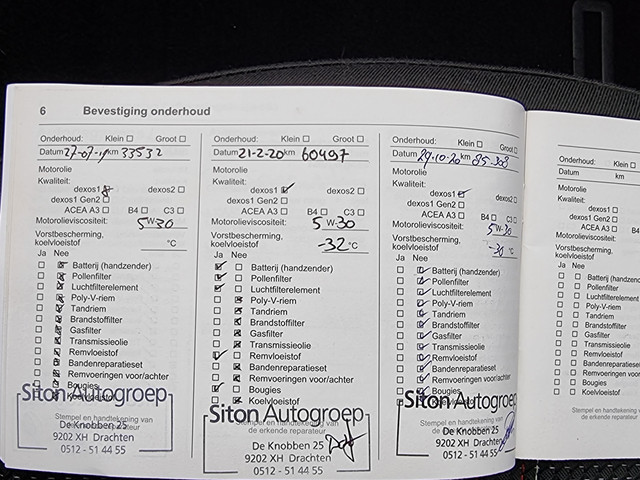 6 Bevestiging onderhoud
Onderhoud: Klein ☐ Groot ☐
Datum 27-07-19 km 33532
Motorolie
Kwaliteit:
dexos1 ☑ dexos2 ☐
dexos1 Gen2 ☐
ACEA A3 ☐ B4 ☐ C3 ☐
Motorolieviscositeit: 5W-30
Vorstbescherming,
koelvloeistof °C
Ja Nee
☐ ☑ Batterij (handzender)
☐ ☑ Pollenfilter
☐ ☑ Luchtfilterelement
☐ ☑ Poly-V-riem
☐ ☑ Tandriem
☐ ☑ Brandstoffilter
☐ ☑ Gasfilter
☐ ☑ Transmissieolie
☐ ☑ Remvloeistof
☐ ☑ Bandenreparatieset
☐ ☑ Remvoeringen voor/achter
Bougies
Koelvloeistof
Siton Autogroep
Stempel en handtekening van
de erkende reparateur
De Knobben 25
9202 XH Drachten
0512 - 51 44 55
Onderhoud: Klein ☐ Groot ☐
Datum 21-2-20 km 60497
Motorolie
Kwaliteit:
dexos1 ☑ dexos2 ☐
dexos1 Gen2 ☐
ACEA A3 ☐ B4 ☐ C3 ☐
Motorolieviscositeit: 5W-30
Vorstbescherming,
koelvloeistof -32 °C
Ja Nee
☑ ☐ Batterij (handzender)
☑ ☐ Pollenfilter
☑ ☐ Luchtfilterelement
☐ ☑ Poly-V-riem
☐ ☑ Tandriem
☐ ☑ Brandstoffilter
☐ ☑ Gasfilter
☐ ☑ Transmissieolie
☑ ☐ Remvloeistof
☐ ☑ Bandenreparatieset
☐ ☑ Remvoeringen voor/achter
☑ ☐ Bougies
☐ ☑ Koelvloeistof
Siton Autogroep
de erkende reparateur
De Knobben 25
9202 XH Drachten
0512 - 51 44 55
Onderhoud: Klein ☐ Groot ☐
Datum 29-10-20 km 85-308
Motorolie
Kwaliteit:
dexos1 ☑ dexos2 ☐
dexos1 Gen2 ☐
ACEA A3 ☐ B4 ☐ C3 ☐
Motorolieviscositeit: 5W-30
Vorstbescherming,
koelvloeistof °C
Ja Nee
☐ ☑ Batterij (handzender)
☐ ☑ Pollenfilter
☐ ☑ Luchtfilterelement
☐ ☑ Poly-V-riem
☐ ☑ Tandriem
☐ ☑ Brandstoffilter
☐ ☑ Gasfilter
☐ ☑ Transmissieolie
☐ ☑ Remvloeistof
☐ ☑ Bandenreparatieset
☐ ☑ Remvoeringen voor/achter
☐ ☑ Bougies
Koelvloeistof
Siton Autogroep
Stempel en handtekening van
de erkende reparateur
De Knobben 25
9202 XH Drachten
0512 - 51 44 55
Onderhoud: Klein
Datum km
Motorolie
Kwaliteit:
dexos1 ☐
dexos1 Gen2 ☐
ACEA A3 ☐
Motorolieviscositeit:
Vorstbescherming,
koelvloeistof
Ja Nee
☐ ☐ Batterij (handzender)
☐ ☐ Pollenfilter
☐ ☐ Luchtfilterelement
☐ ☐ Poly-V-riem
☐ ☐ Tandriem
☐ ☐ Brandstoffilter
☐ ☐ Gasfilter
☐ ☐ Transmissieolie
☐ ☐ Remvloeistof
☐ ☐ Bandenreparatieset
☐ ☐ Remvoeringen
☐ ☐ Bougies
☐ ☐ Koelvloeistof